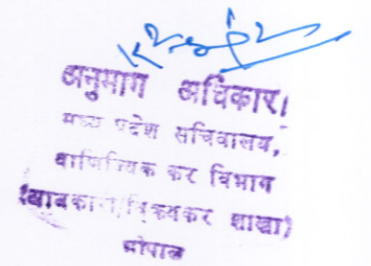 अनुभाग अधिकारी
मध्य प्रदेश सचिवालय,
वाणिज्यिक कर विभाग
(आबकारी/विक्रयकर शाखा)
भोपाल